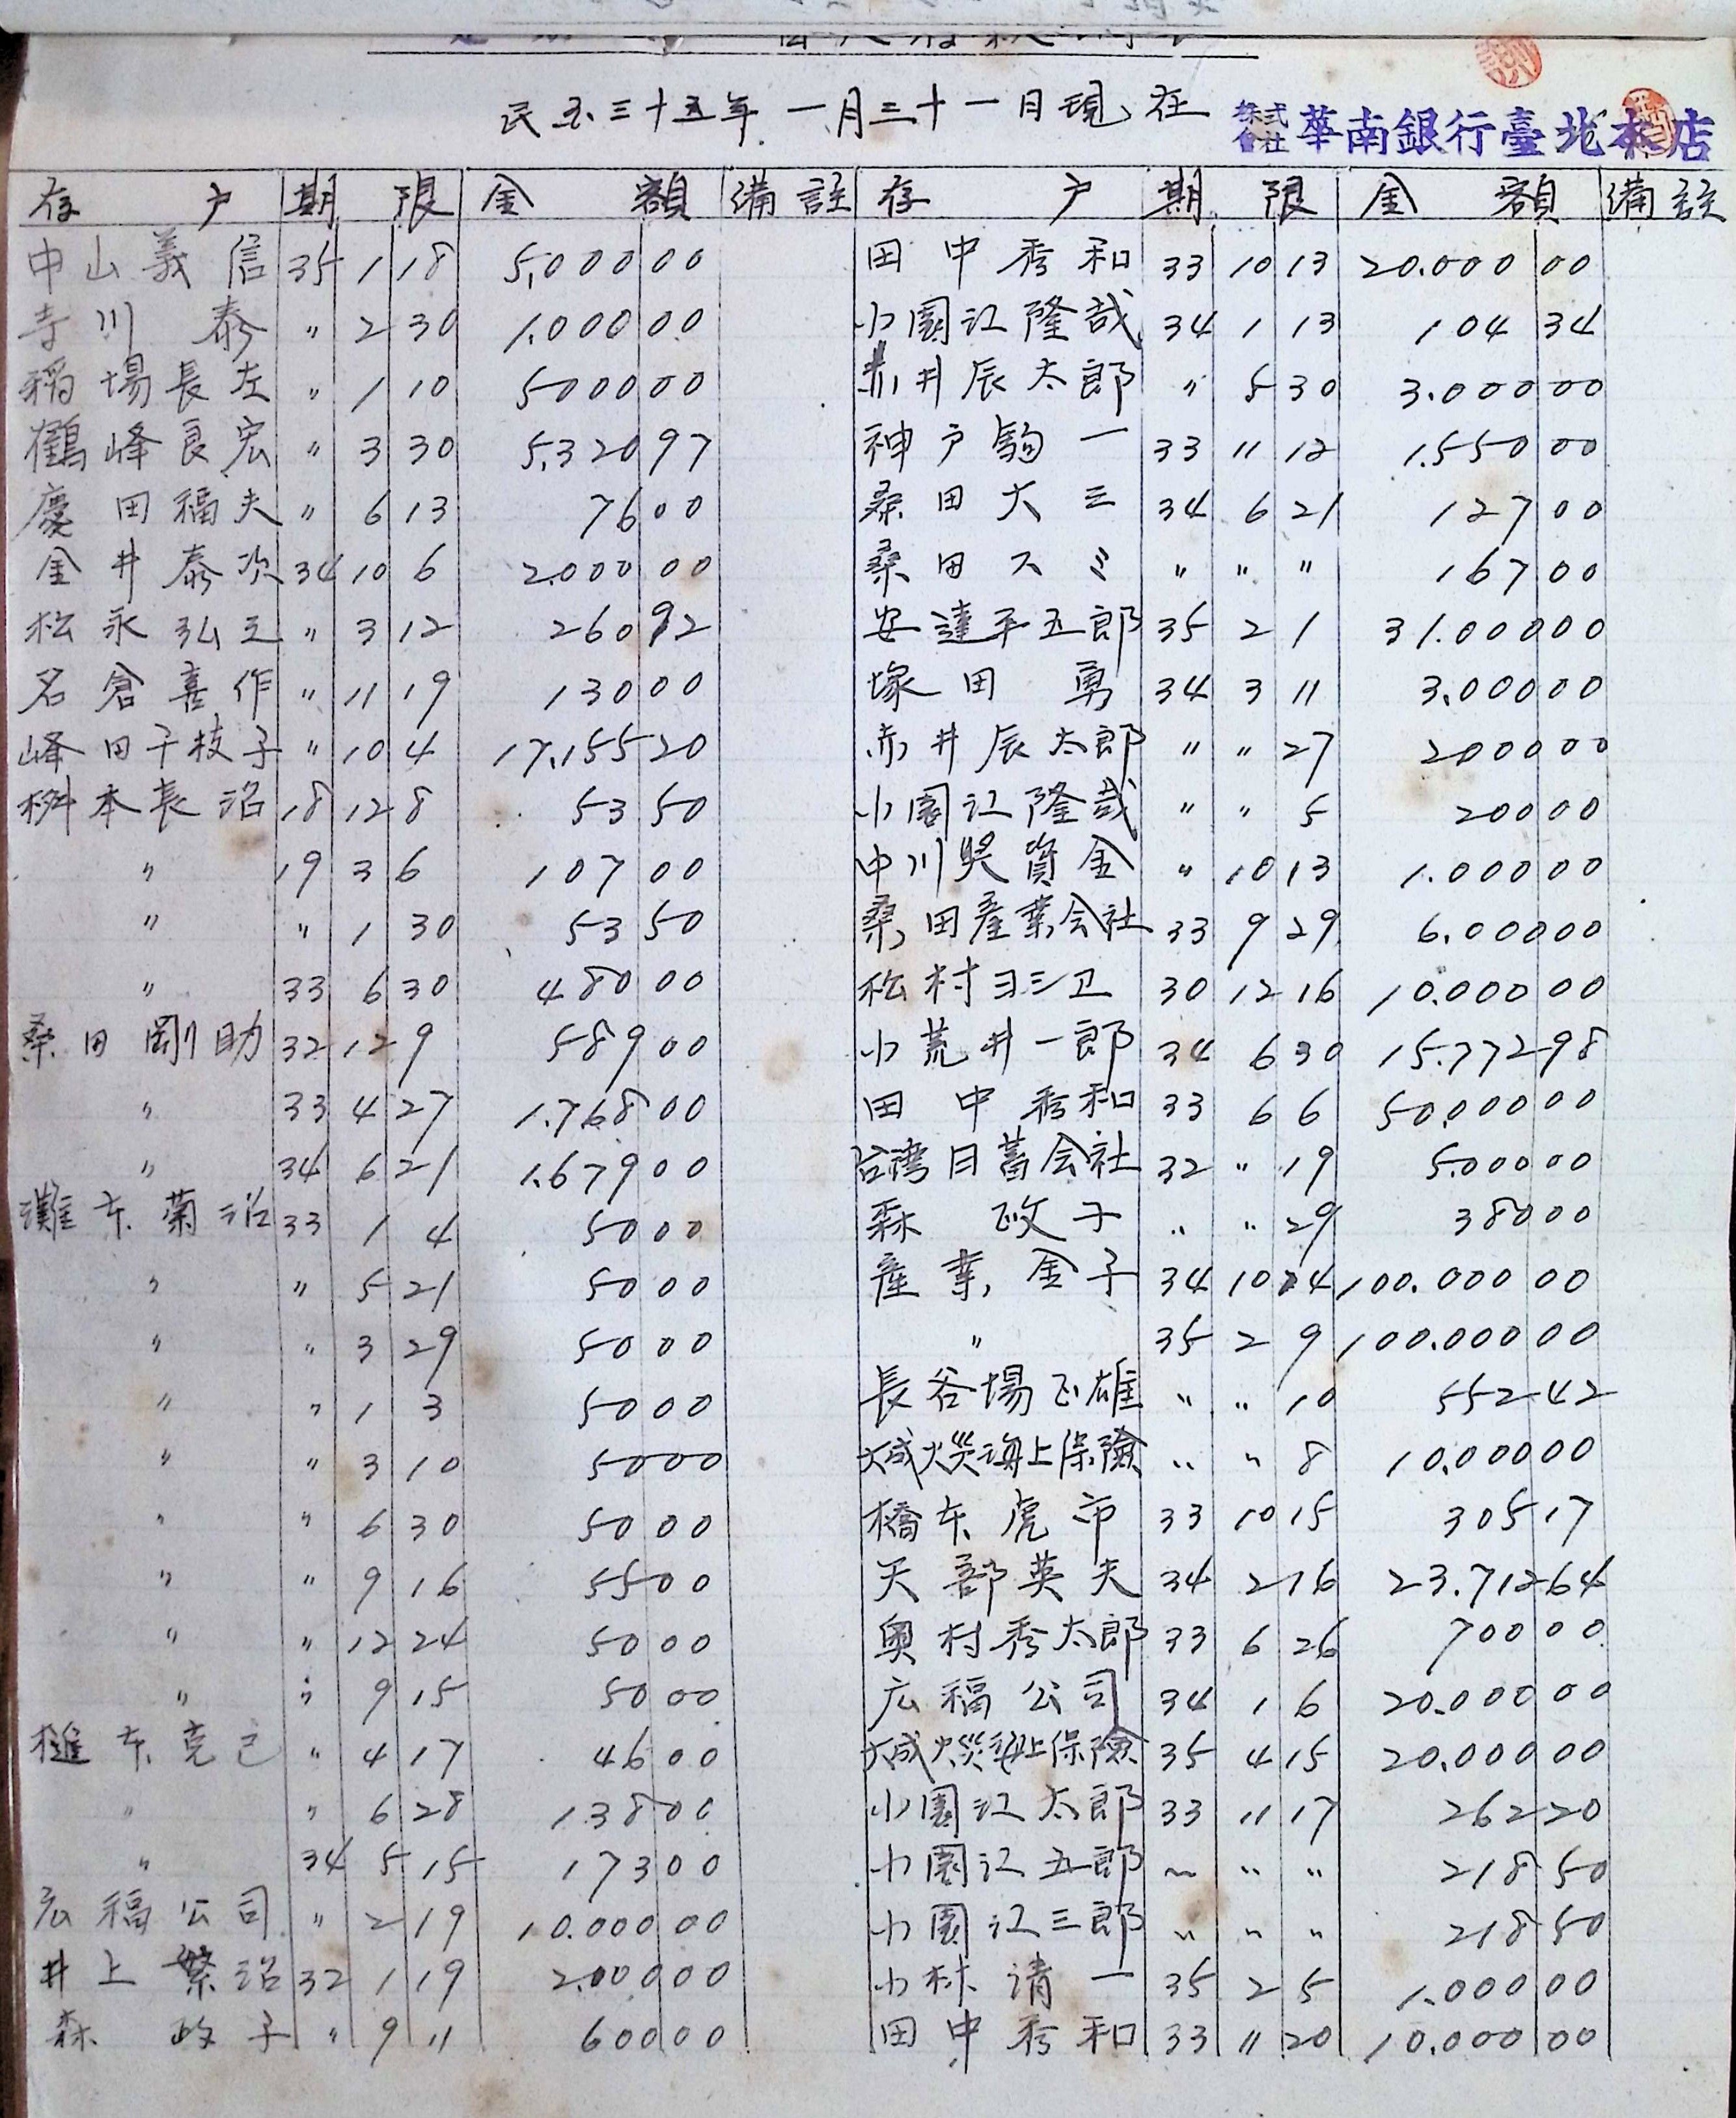 民国三十五年一月三十一日現在
株式會社 華南銀行臺北本店
存戶 期限 金額 備註 存戶 期限 金額 備註
中山義信 35 1 18 5,000 00
寺川 泰 〃 2 30 1.000 00
稻場長左 〃 1 10 5000 00
鶴峰良宏 〃 3 30 5,320 97
慶田福夫 〃 6 13 76 00
金井泰次 34 10 6 2.000 00
松永弘之 〃 3 12 260 92
名倉喜作 〃 11 19 130 00
峰田千枝子 〃 10 4 17,155 20
桝本長治 18 12 8 53 50
〃 19 3 6 107 00
〃 〃 1 30 53 50
〃 33 6 30 480 00
桑田剛助 32 12 9 589 00
〃 33 4 27 1.768 00
〃 34 6 21 1.679 00
灘本菊治 33 1 4 50 00
〃 〃 5 21 50 00
〃 〃 3 29 50 00
〃 〃 1 3 50 00
〃 〃 3 10 50 00
〃 〃 6 30 50 00
〃 〃 9 16 55 00
〃 〃 12 24 50 00
〃 〃 9 15 50 00
本克己 〃 4 17 46 00
〃 〃 6 28 138 00
〃 34 5 15 173 00
宏福公司 〃 2 19 10.000 00
井上繁治 32 1 19 2.000 00
森 政子 〃 9 11 600 00
田中秀和 33 10 13 20.000 00
小園江隆哉 34 1 13 104 34
赤井辰太郎 〃 5 30 3.000 00
神戶駒一 33 11 12 1.550 00
桑田大三 34 6 21 127 00
桑田スミ 〃 〃 〃 167 00
安達平五郎 35 2 1 31.000 00
塚田 勇 34 3 11 3.000 00
赤井辰太郎 〃 〃 27 2000 00
小園江隆哉 〃 〃 5 200 00
中川奖資金 〃 10 13 1.000 00
桑田産業会社 33 9 29 6.000 00
松村ヨシ卫 30 12 16 10.000 00
小荒井一郎 34 6 30 15.772 98
田中秀和 33 6 6 50.000 00
台湾日蓄会社 32 〃 19 5.000 00
森 政子 〃 〃 29 380 00
産業金子 34 10 24 100.000 00
〃 35 2 9 100.000 00
長谷場正雄 〃 〃 10 552 42
大成火災海上保險 〃 〃 8 10.000 00
橋本虎市 33 10 15 305 17
天部英夫 34 2 16 23.712 64
奥村秀太郎 33 6 26 700 00
広福公司 34 1 6 20.000 00
大成火災海上保險 35 4 15 20.000 00
小園江太郎 33 11 17 262 20
小園江五郎 〃 〃 〃 218 50
小園江三郎 〃 〃 〃 218 50
小林清一 35 2 5 1.000 00
田中秀和 33 11 20 10.000 00